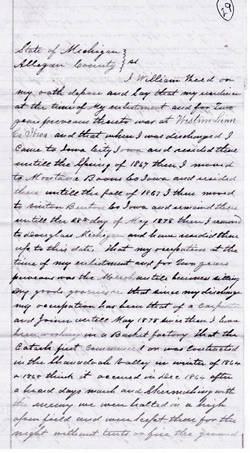 29
State of Michigan
Allegan County } ss
I William Theed on
my oath depose and Say that my residence
at the time of My enlistment and for two
years previous thereto was at Western
Co and that when I was discharged I
Came to Iowa City Iowa and resided there
untill the Spring of 1867 then I moved
to Benton Co Iowa and resided
there untill the fall of 1867 I then moved
to Vinton Benton Co Iowa and remained there
untill the 28 day of May 1878 then I moved
to Douglas Michigan and have resided there
up to this date. That my occupation at the
time of my enlistment and for two years
previous was the
dry goods that since my discharge
my occupation has been that of a Carpenter
and Joiner untill May 1878 since then I have
been working in a Basket factory that the
Catarrh first Commenced or was Contracted
in the Shanadoah Valley in winter of 1864
a I think it accured in Dec 1864 after
a hard days march and Skirmishing with
the enemy we were halted in a high
open field and were kept there for the
night without tents or fire the ground